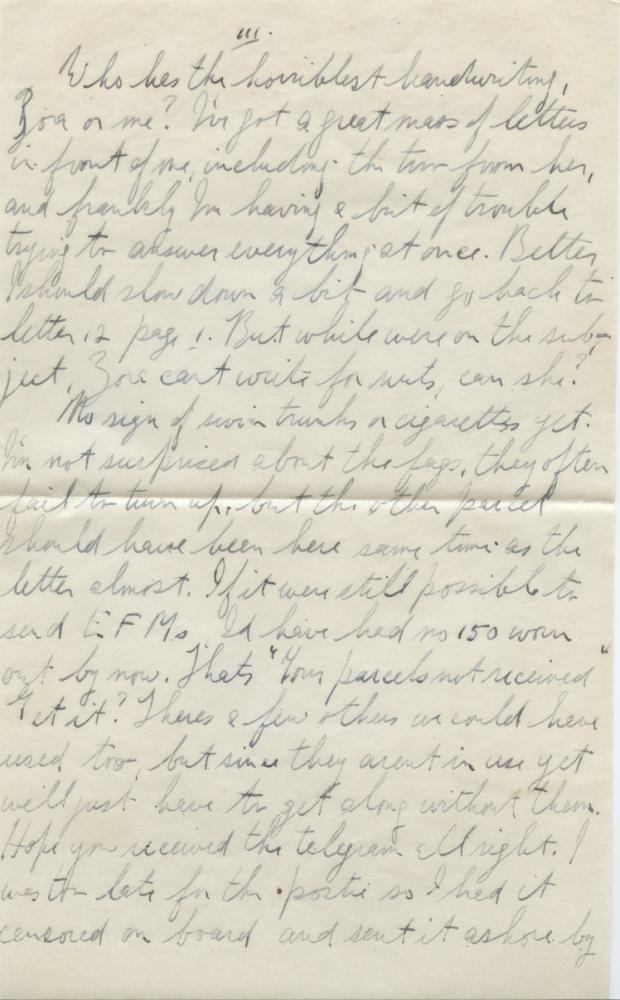 III.
Who has the horriblest handwriting,
Zoa or me? I've got a great mass of letters
in front of me, including the two from her,
and frankly Im having a bit of trouble
trying to answer everything at once. Better
I should slow down a bit and go back to
letter 12 page 1. But while were on the sub-
ject, Zoa cant write for nuts, can she?
No sign of swim trunks or cigarettes yet.
I'm not surprized about the fags, they often
fail to turn up, but the other parcel
should have been here same time as the
letter almost. If it were still possible to
send EFMs, Id have had no 150 worn
out by now. Thats "Your parcels not received"
Get it? Theres a few others we could have
used too, but since they arent in use yet
we'll just have to get along without them.
Hope you received the telegram allright. I
was too late for the postie so I had it
censored on board and sent it ashore by